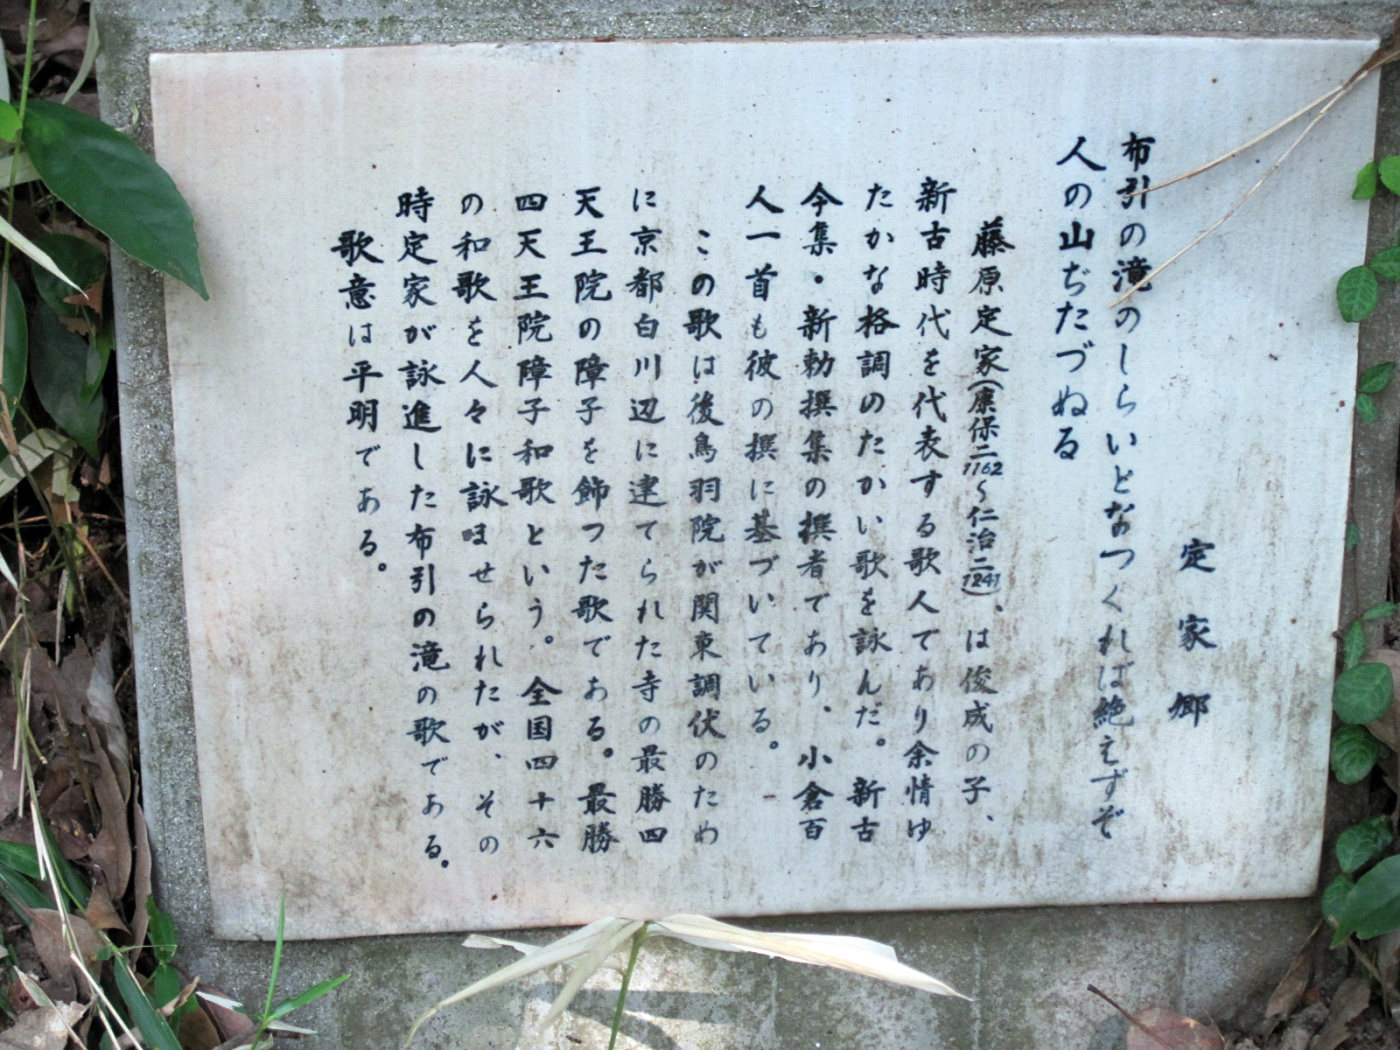 定家郷
布引の滝のしらいとなつくれば絶えずぞ
人の山ぢたづぬる
藤原定家(康保二1162〜仁治二1241)、は俊成の子、
新古時代を代表する歌人であり余情ゆ
たかな格調のたかい歌を詠んだ。新古
今集・新勅撰集の撰者であり、小倉百
人一首も彼の撰に基づいている。
この歌は後鳥羽院が関東調伏のため
に京都白川辺に建てられた寺の最勝四
天王院の障子を飾つた歌である。最勝
四天王院障子和歌という。全国四十六
の和歌を人々に詠ませられたが、その
時定家が詠進した布引の滝の歌である。
歌意は平明である。